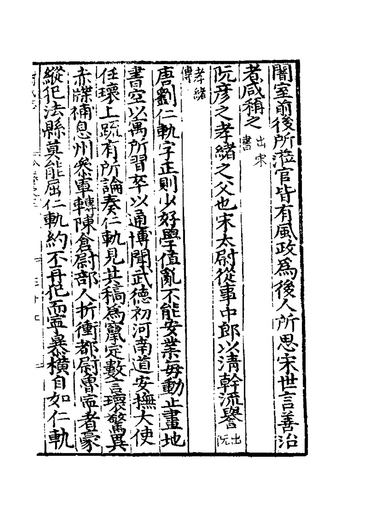 闇室前後所涖官皆有風政為後人所思宋世言善治
者咸稱之 出宋書
阮彦之孝緒之父也宋太尉從事中郎以清幹流譽 出阮
孝緒傳
唐劉仁軌字正則少好學值亂不能安業每動止畫地
書空以寓所習卒以通博聞武德初河南道安撫大使
任瓌上疏有所論奏仁軌見其稿為竄定數言瓌驚異
赤牒補息州參軍轉陳倉尉部人折衝都尉魯寧者豪
縱犯法縣莫能屈仁軌約不再犯而寧暴橫自如仁軌